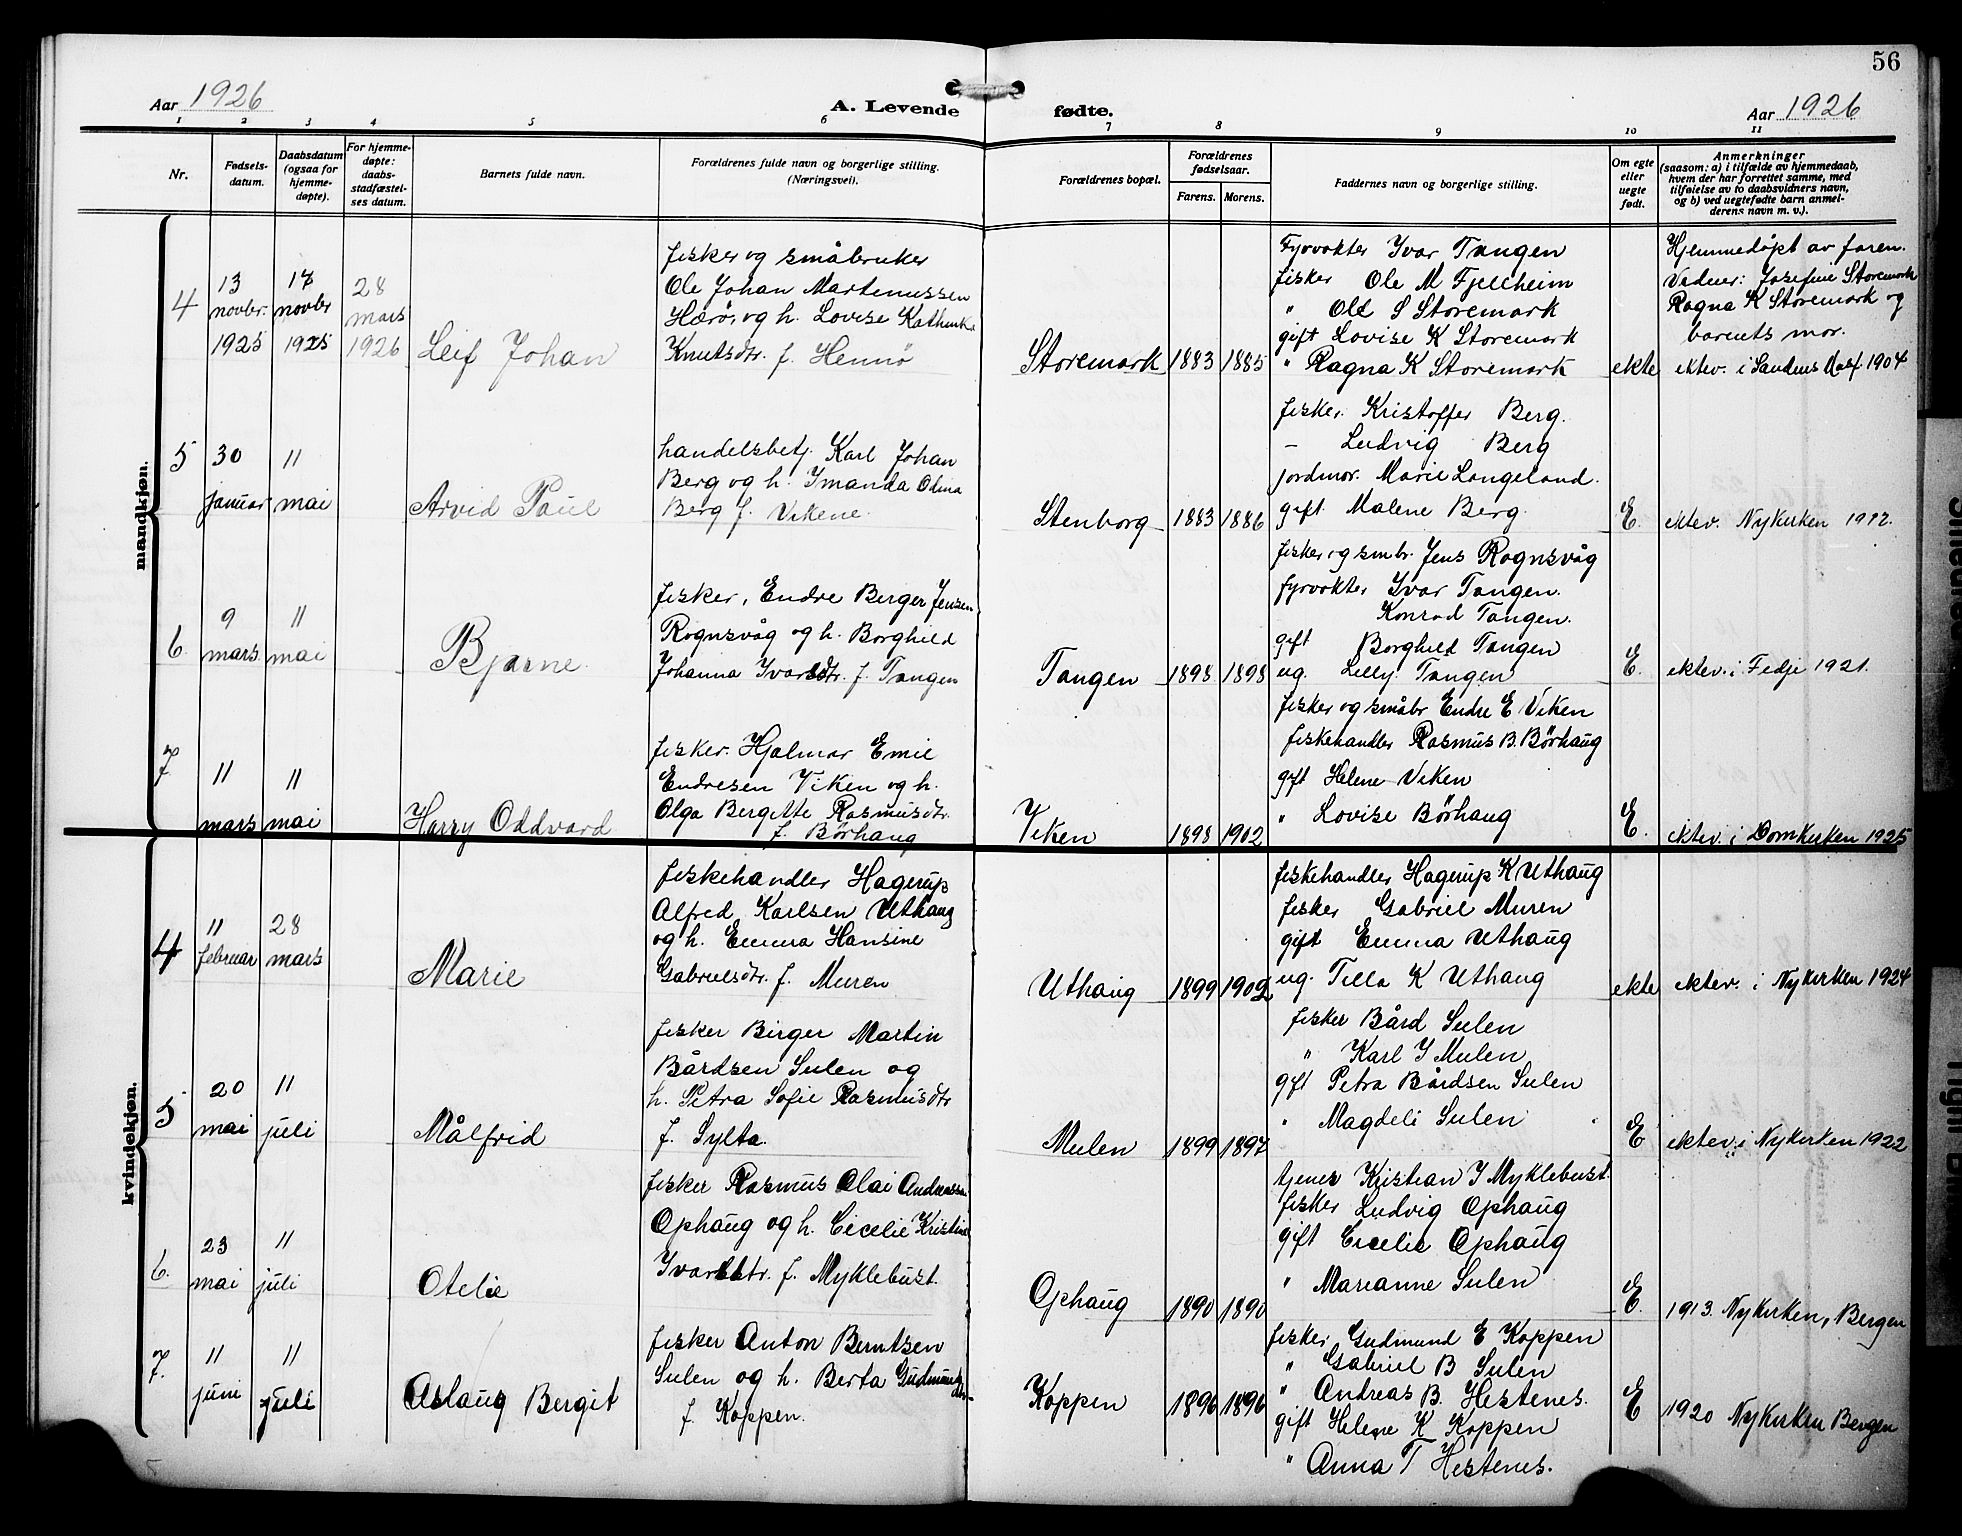 56
Aar 1926
A. Levende
fødte.
Aar 1926
1 2 3 4 5 6 7 8 9 10 11
Nr.
Fødsels-
datum.
Daabsdatum
(ogsaa for
hjemme-
døpte).
For hjemme-
døpte:
daabs-
stadfæstel-
ses datum.
Barnets fulde navn.
Forældrenes fulde navn og borgerlige stilling.
(Næringsvei).
Forældrenes bopæl.
Forældrenes
fødselsaar.
Farens. Morens.
Faddernes navn og borgerlige stilling.
Om egte
eller
uegte
født.
Anmerkninger
(saasom: a) i tilfælde av hjemmedaab,
hvem der har forrettet samme, med
tilføielse av to daabsvidners navn,
og b) ved uegtefødte barn anmel-
derens navn m. v.).
mandkjøn.
4
13
novbr.
1925
17
novbr
1925
28
mars
1926
Leif Johan
fisker og småbruker
Ole Johan Martinussen
Hærø, og h. Lovise Kathinka
Knutsdtr. f. Hennø
Storemark
1883
1885
Fyrvokter Ivar Tangen
fisker Ole M Fjellheim
" Ole S Storemark
gift Lovise K Storemark
" Ragna K Storemark
ekte
Hjemmedøpt av faren.
Vidner: Josefine Storemark
Ragna K Storemark og
barnets mor.
ektev. i Sandnes 1904
5
30
januar
11
mai
Arvid Paul
handelsbetj. Karl Johan
Berg og h. Imanda Odina
Berg f. Vikene.
Stenborg
1883
1886
fisker. Kristoffer Berg.
– Ludvig Berg
jordmor. Marie Langeland.
gift. Malene Berg.
E.
ektev. Nykirken 1912.
6.
9
mars
11
mai
Bjarne.
fisker, Endre Berger Jensen
Rognsvåg og h. Borghild
Johanna Ivarsdtr. f. Tangen
Tangen
1898
1898
fisker og smbr. Jens Rognsvåg
fyrvokter Ivar Tangen.
Konrad Tangen.
gift Borghild Tangen
ug. Lilly Tangen
E.
ektev. i Fedje 1921.
7
11
mars
11
mai
Harry Oddvard
fisker. Hjalmar Emil
Endresen Viken og h.
Olga Bergitte Rasmusdtr.
f. Børhaug
Viken
1898
1902
fisker og småbr Endre E Viken
fiskehandler Rasmus B. Børhaug
gift Helene Viken
" Lovise Børhaug
E.
ektev. i Domkirken 1925
kvindekjøn.
4
11
februar
28
mars
Marie
fiskehandler Hagerup
Alfred Karlsen Uthaug
og h. Emma Hansine
Gabrielsdtr. f. Muren
Uthaug
1899
1902
fiskehandler Hagerup K Uthaug
fisker Gabriel Muren
gift Emma Uthaug
ug. Tilla K Uthaug
ekte
ektev. i Nykirken 1924
5
20
mai
11
juli
Målfrid
fisker Birger Martin
Bårdsen Sulen og
h. Petra Sofie Rasmusdtr
f. Sylta.
Mulen
1899
1897
fisker Bård Sulen
" Karl I Mulen
gift Petra Bårdsen Sulen
" Magdeli Sulen
E
ektev. i Nykirken 1922
6.
23
mai
11
juli
Otelie
fisker Rasmus Olai Andreassen
Ophaug og h. Cicelie Kristine
Ivarsdtr. f. Myklebust.
Ophaug
1890
1890
tjener Kristian I Myklebust.
fisker Ludvig Ophaug
gift Cicelie Ophaug
" Marianne Sulen
E.
1913. Nykirken, Bergen
7.
11
juni
11
juli
Aslaug Bergit
fisker Anton Berntsen
Sulen og h. Berta Gudmunds
dtr
f. Koppen.
Koppen
1896
1896
fisker, Gudmund E Koppen
" Gabriel B Sulen
" Andreas B. Hestenes.
gift Helene K Koppen
" Anna T Hestenes.
E
1920 Nykirken Bergen